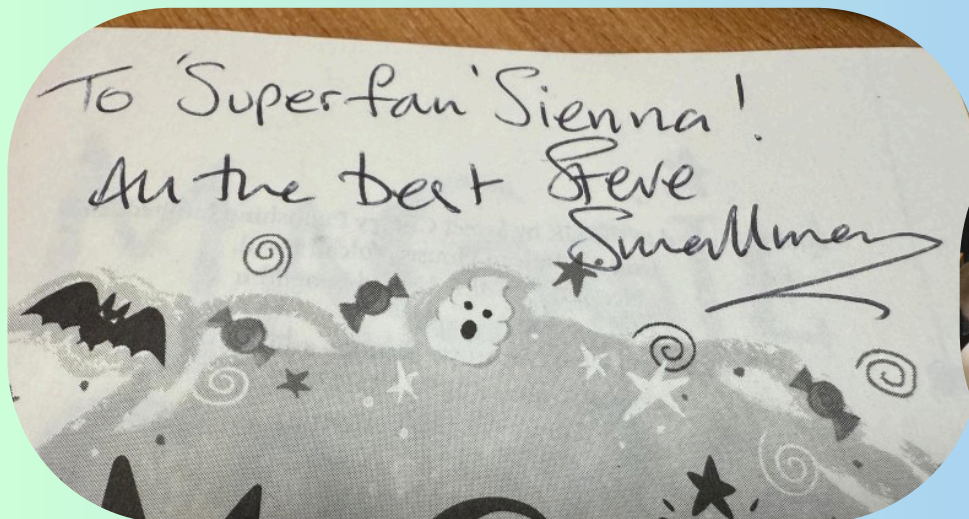 To 'Superfan' Sienna!
All the best Steve
Smallman